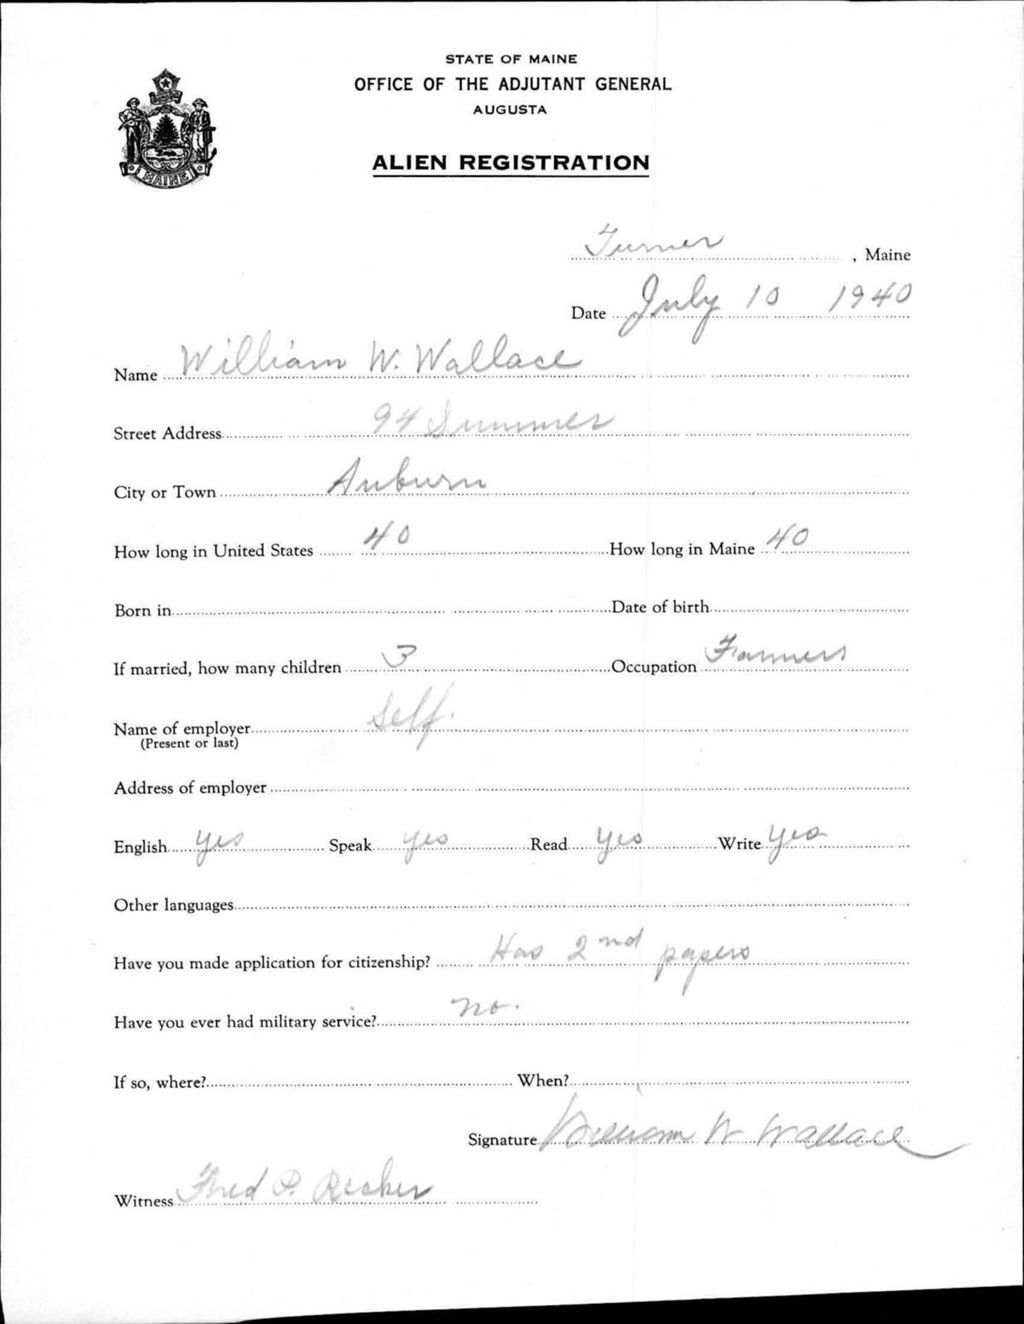 STATE OF MAINE
OFFICE OF THE ADJUTANT GENERAL
AUGUSTA
ALIEN REGISTRATION
MAINE
Turner, Maine
Date July 10 1940
Name William W. Wallace
Street Address 94 Summer
City or Town Auburn
How long in United States 40 How long in Maine 40
Born in Date of birth
If married, how many children 3 Occupation Farmer
Name of employer Self.
(Present or last)
Address of employer
English yes Speak yes Read yes Write yes
Other languages
Have you made application for citizenship? Has 2nd papers
Have you ever had military service? no.
If so, where? When?
Signature William W Wallace
Witness Fred P.